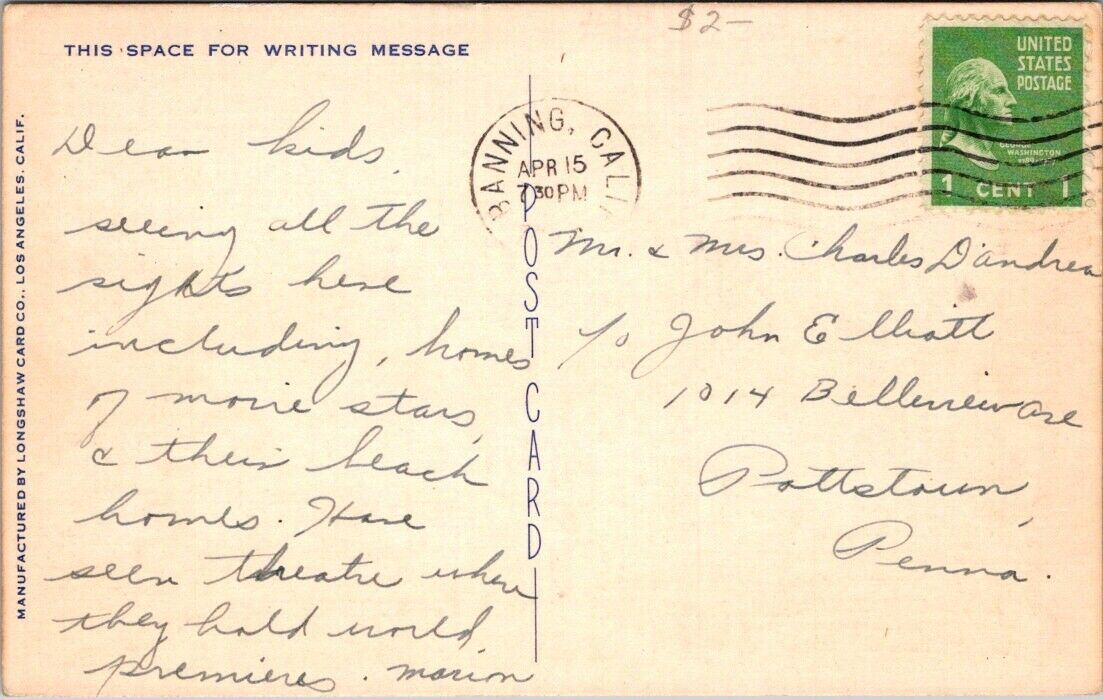 $2-
THIS SPACE FOR WRITING MESSAGE
UNITED
STATES
POSTAGE
GEORGE
WASHINGTON
1 CENT 1
BANNING, CALIF
APR 15
7 30 PM
Dear kids,
seeing all the
sights here
including, homes
of movie stars,
& their beach
homes. Have
seen theatre where
they hold world
premieres. Marion
POST CARD
Mr. & Mrs. Charles D'andrea
c/o John Elliott
1014 Bellevieware
Pottstown,
Penna.
MANUFACTURED BY LONGSHAW CARD CO., LOS ANGELES, CALIF.